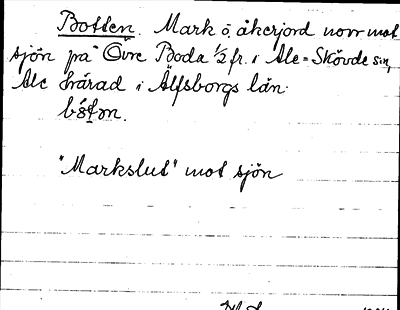 Botten. Mark o. åkerjord norr mot
sjön på Övre Boda 1/2 fr. i Ale-Skövde sn,
Ale härad i Älfsborgs län.
båtm.
"Markslut" mot sjön